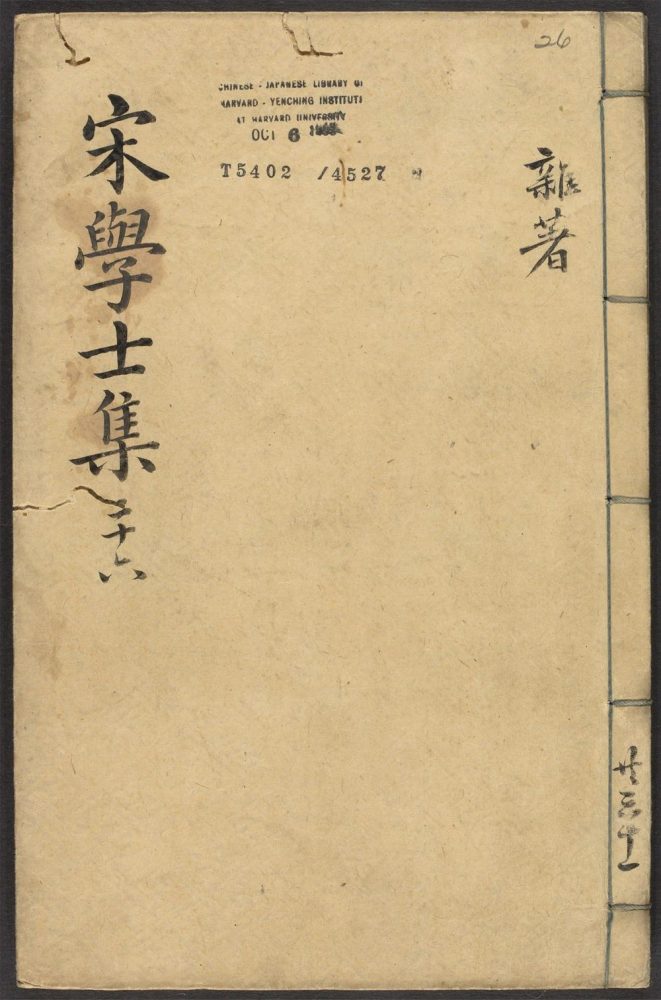 26
雜著
CHINESE - JAPANESE LIBRARY OF
HARVARD - YENCHING INSTITUTE
AT HARVARD UNIVERSITY
OCT 6
T5402 /4527
宋學士集 二十六